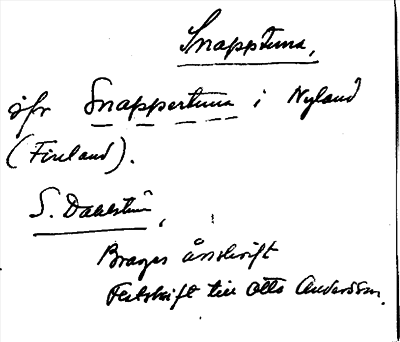 Snapptuna,
jfr Snappertuna i Nyland
(Finland).
S. Dahlström,
Brages årsskrift
Festskrift till Otto Andersson.